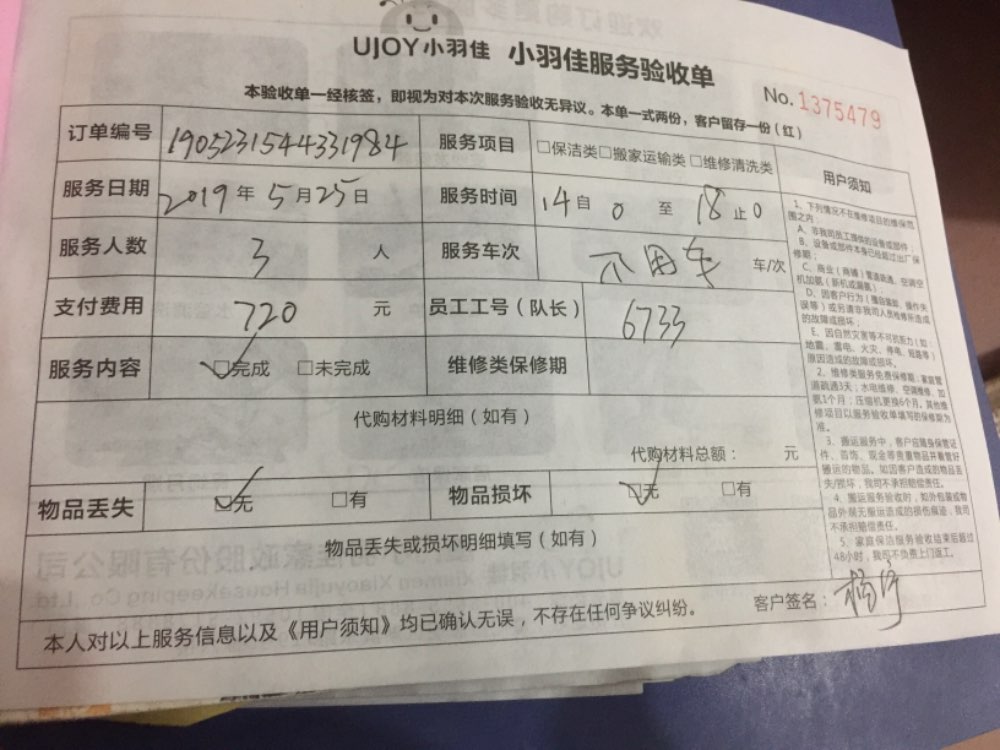 UJOY小羽佳 小羽佳服务验收单
No. 1375479
本验收单一经核签，即视为对本次服务验收无异议。本单一式两份，客户留存一份（红）
订单编号 1905231544331984 服务项目 □保洁类□搬家运输类□维修清洗类
服务日期 2019年5月25日 服务时间 14自0至18止0
服务人数 3 人 服务车次 不用车 车/次
支付费用 720 元 员工工号（队长） 6733
服务内容 ☑完成 □未完成 维修类保修期
代购材料明细（如有）
代购材料总额： 元
物品丢失 ☑无 □有 物品损坏 ☑无 □有
物品丢失或损坏明细填写（如有）
用户须知
1、下列情况不在维修项目的维保范
围之内：
A、非我司员工提供的设备或部件；
B、设备或部件本身已经超过出厂保
修期；
C、商业（商铺）管道疏通、空调空
机加氨（新机或漏氨）；
D、因客户行为（擅自装卸、操作失
误等）或另遣非我司人员检修所造成
的故障或损坏；
E、因自然灾害等不可抗拒力（如：
地震、雷电、火灾、停电、短路等）
原因造成的故障或损坏。
2、维修类服务免费保修期：家庭管
道疏通3天；水电维修、空调维修、加
氨1个月；压缩机更换6个月。其他维
修项目以服务验收单填写的保修期为
准。
3、搬运服务中，客户应随身保管证
件、首饰、现金等贵重物品并看管好
搬运的物品。如因客户造成的物品丢
失/损坏，我司不承担赔偿责任。
4、搬运服务验收时，如外包装或物
品外观无搬运造成的损伤痕迹，我司
不承担赔偿责任。
5、家庭保洁服务验收结束后超过
48小时，我司不负责上门返工。
本人对以上服务信息以及《用户须知》均已确认无误，不存在任何争议纠纷。 客户签名：